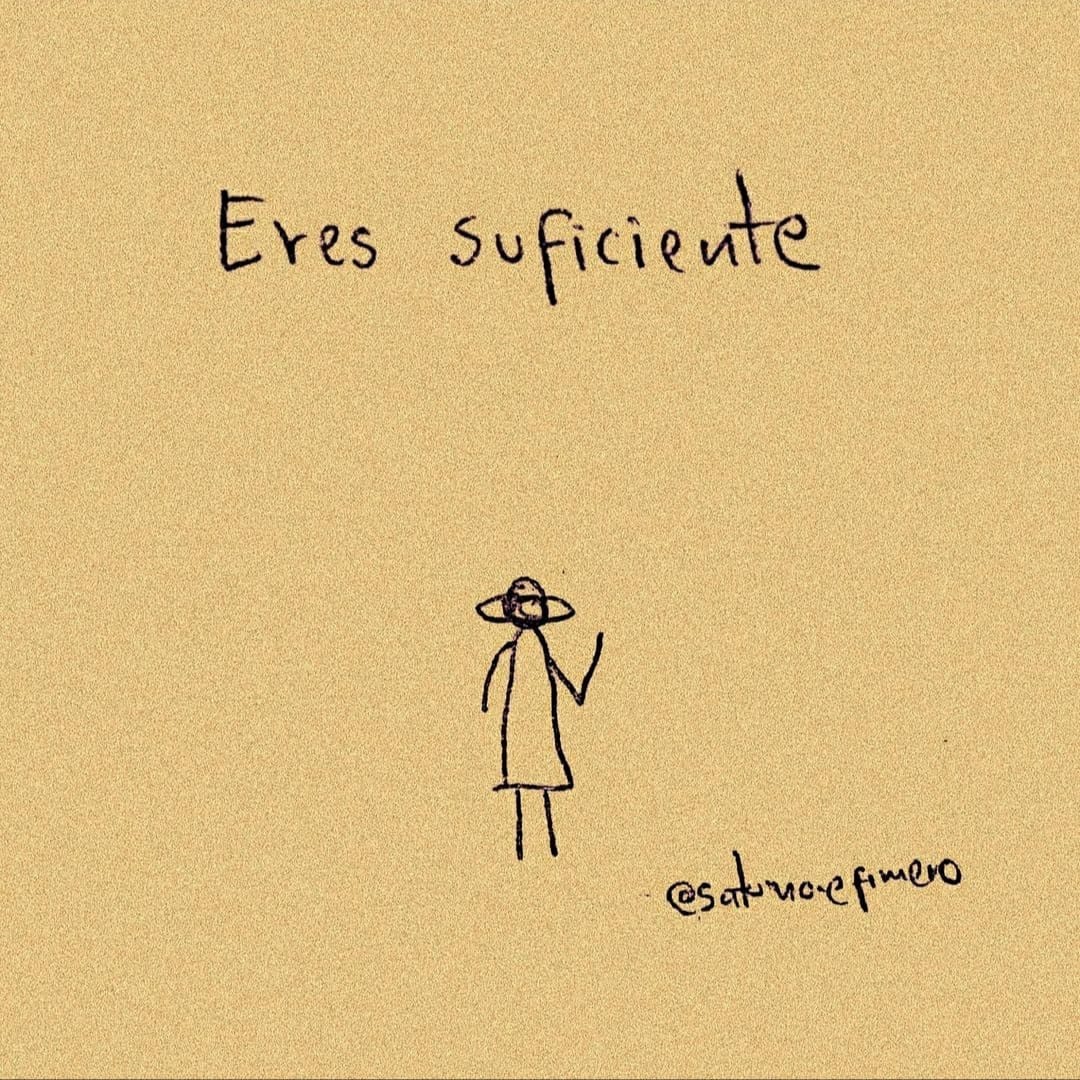 Eres suficiente
@saturno.efimero